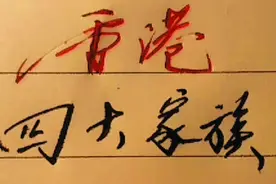 香港
四大家族